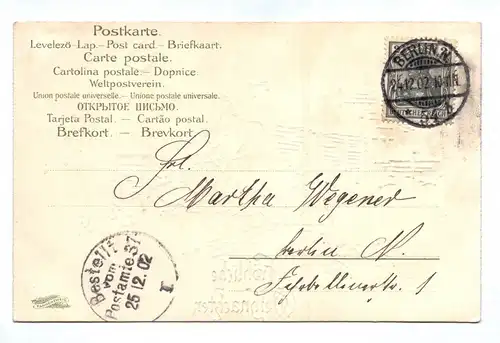 Postkarte.
Levelező-Lap.–Post card.–Briefkaart.
Carte postale.
Cartolina postale – Dopnice.
Weltpostverein.
Union postale universelle. – Unione postale universale.
ОТКРЫТОЕ ПИСЬМО.
Tarjeta Postal. – Cartão postal.
Brefkort. – Brevkort.
BERLIN.N.
24.12.02
Frl.
Martha Wegener
Berlin N.
Fehrbellinerstr. 1
Bestellt
vom
Postamte 37
25 12. 02
I